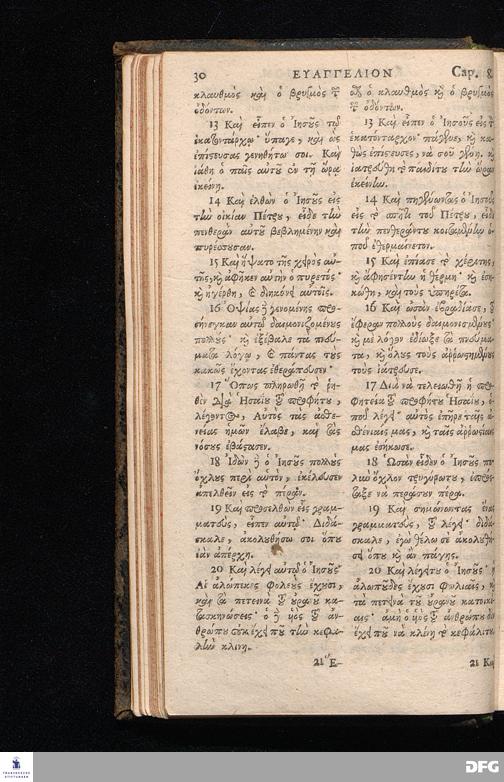 30 ΕΥΑΓΓΕΛΙΟΝ Cap. 8.
κλαυθμὸς καὶ ὁ βρυγμὸς τῶν
ὀδόντων.
13 Καὶ εἶπεν ὁ Ἰησοῦς τῷ
ἑκατοντάρχῳ· ὕπαγε, καὶ ὡς
ἐπίστευσας γενηθήτω σοι. Καὶ
ἰάθη ὁ παῖς αὐτοῦ ἐν τῇ ὥρᾳ
ἐκείνῃ.
14 Καὶ ἐλθὼν ὁ Ἰησοῦς εἰς
τὴν οἰκίαν Πέτρου, εἶδε τὴν
πενθερὰν αὐτοῦ βεβλημένην καὶ
πυρέσσουσαν.
15 Καὶ ἥψατο τῆς χειρὸς αὐ-
τῆς, κ̀ ἀφῆκεν αὐτὴν ὁ πυρετός·
κ̀ ἠγέρθη, κ̀ διηκόνει αὐτοῖς.
16 Ὀψίας δὲ γενομένης προσ-
ήνεγκαν αὐτῷ δαιμονιζομένους
πολλούς· κ̀ ἐξέβαλε τὰ πνεύ-
ματα λόγῳ, κ̀ πάντας τοὺς
κακῶς ἔχοντας ἐθεράπευσεν·
17 Ὅπως πληρωθῇ τὸ ῥη-
θὲν διὰ Ἡσαΐου τοῦ προφήτου,
λέγοντος, Αὐτὸς τὰς ἀσθε-
νείας ἡμῶν ἔλαβε, καὶ τὰς
νόσους ἐβάστασεν.
18 Ἰδὼν δὲ ὁ Ἰησοῦς πολλοὺς
ὄχλους περὶ αὐτὸν, ἐκέλευσεν
ἀπελθεῖν εἰς τὸ πέραν.
19 Καὶ προσελθὼν εἷς γραμ-
ματεὺς, εἶπεν αὐτῷ· Διδά-
σκαλε, ἀκολουθήσω σοι ὅπου
ἐὰν ἀπέρχῃ.
20 Καὶ λέγει αὐτῷ ὁ Ἰησοῦς·
Αἱ ἀλώπεκες φωλεοὺς ἔχουσι,
καὶ τὰ πετεινὰ τοῦ οὐρανοῦ κα-
τασκηνώσεις· ὁ δὲ υἱὸς τοῦ ἀν-
θρώπου οὐκ ἔχει ποῦ τὴν κεφα-
λὴν κλίνῃ.
21 Ἕ-
ὁ κλαυθμὸς κ̀ ὁ βρυγμὸς
τῶν ὀδόντων.
13 Καὶ εἶπεν ὁ Ἰησοῦς εἰς τὸν
ἑκατόνταρχον· πάγαινε, κ̀ κα-
θὼς ἐπίστευσες, νὰ σοῦ γένῃ. κ̀
ἰατρεύθη τὸ παιδίτου τὴν ὥραν
ἐκείνην.
14 Καὶ πηγαίνωντας ὁ Ἰησοῦς
εἰς τὸ σπίτι τοῦ Πέτρου, εἶδε
τὴν πενθεράντου κοιταμένην ὁ-
ποῦ ἐθερμαίνετον.
15 Καὶ ἐπίασε τὸ χέριτης,
κ̀ ἀφησέντην ἡ θέρμη· κ̀ ἐση-
κώθη, καὶ τοὺς ὑπηρέτα.
16 Καὶ ὡσὰν ἐβραδίασε,
ἔφεραν πολλοὺς δαιμονισμένους
κ̀ μὲ λόγον ἐδίωξε τὰ πνεύμα-
τα, κ̀ ὅλους τοὺς ἀρρωστημένους
τοὺς ἰάτρευσε.
17 Διὰ νὰ τελειωθῇ ἡ προ-
φητεία τοῦ προφήτου Ἡσαΐου, ὁ-
ποῦ λέγει· αὐτὸς ἐπῆρε ταῖς ἀ-
σθένιαις μας, κ̀ ταῖς ἀρρωστίαις
μας ἐσήκωσε.
18 Ὡσὰν εἶδεν ὁ Ἰησοῦς πο-
λὺν ὄχλον τριγύρωτου, ἐπρόσ-
ταξε νὰ περάσουν πέρα.
19 Καὶ σημώνωντας ἕνας
γραμματεὺς, τοῦ λέγει· διδά-
σκαλε, ἐγὼ θέλω σὲ ἀκολουθή-
σει ὅπου κ̀ ἂν πάγῃς.
20 Καὶ λέγειτου ὁ Ἰησοῦς·
ἀλωποῦδες ἔχουσι φωλιαῖς, κ̀
τὰ πετεινὰ τοῦ οὐρανοῦ κατοικί-
αις· ἀμὴ ὁ υἱὸς τοῦ ἀνθρώπου δὲν
ἔχει ποῦ νὰ κλίνῃ τὸ κεφάλιτου.
21 Καὶ
FRANCKESCHE
STIFTUNGEN
DFG